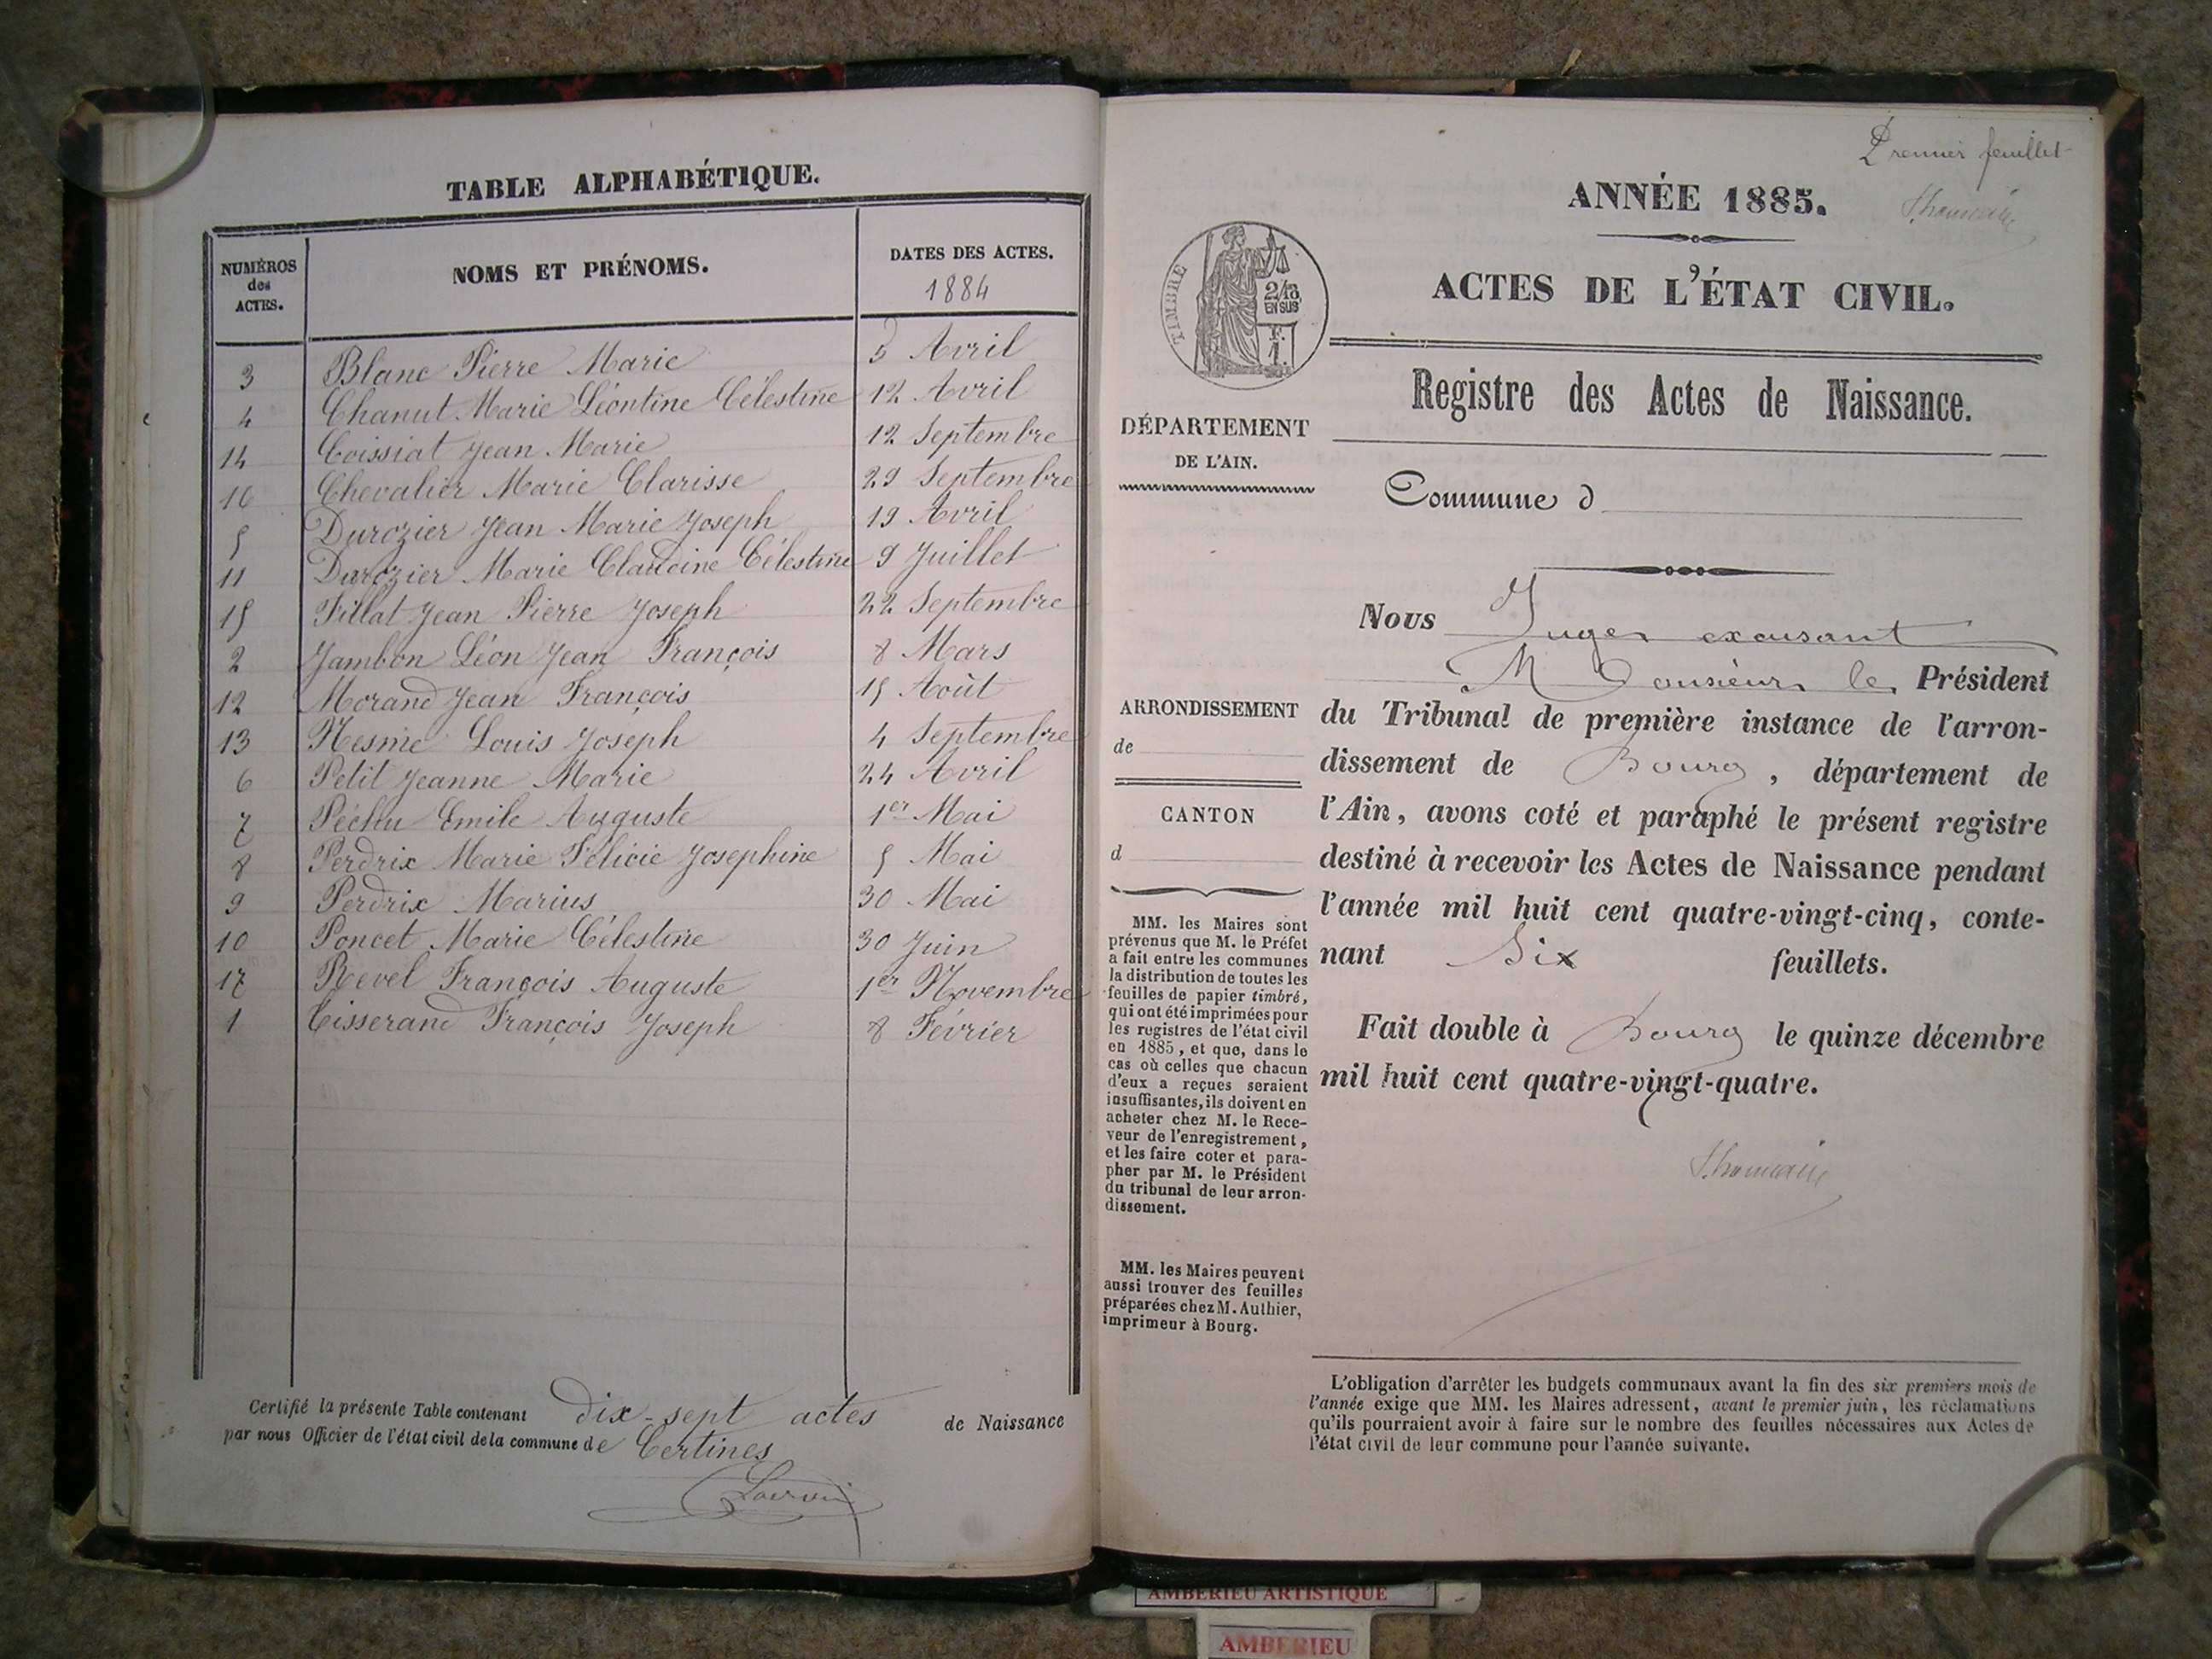 TABLE ALPHABÉTIQUE.
NUMÉROS des ACTES.
NOMS ET PRÉNOMS.
DATES DES ACTES.
1884
3 Blanc Pierre Marie 5 Avril
4 Chanut Marie Léontine Célestine 12 Avril
14 Coissiat Jean Marie 12 Septembre
16 Chevalier Marie Clarisse 29 Septembre
5 Durozier Jean Marie Joseph 19 Avril
11 Durozier Marie Claudine Célestine 9 Juillet
15 Fillat Jean Pierre Joseph 22 Septembre
2 Jambon Léon Jean François 8 Mars
12 Morand Jean François 15 Août
13 Nesme Louis Joseph 4 Septembre
6 Petit Jeanne Marie 24 Avril
7 Péchu Emile Auguste 1er Mai
8 Perdrix Marie Félicie Josephine 5 Mai
9 Perdrix Marius 30 Mai
10 Poncet Marie Célestine 30 Juin
17 Revel François Auguste 1er Novembre
1 Tisserand François Joseph 8 Février
Certifié la présente Table contenant dix-sept actes de Naissance
par nous Officier de l'état civil de la commune de Certines
Premier feuillet
ANNÉE 1885.
ACTES DE L'ÉTAT CIVIL.
TIMBRE
2/10
EN SUS
F.
1.
Registre des Actes de Naissance.
DÉPARTEMENT
DE L'AIN.
Commune d
Nous Juge excusant
Monsieur le Président
du Tribunal de première instance de l'arron-
dissement de Bourg, département de
l'Ain, avons coté et paraphé le présent registre
destiné à recevoir les Actes de Naissance pendant
l'année mil huit cent quatre-vingt-cinq, conte-
nant Six feuillets.
Fait double à Bourg le quinze décembre
mil huit cent quatre-vingt-quatre.
ARRONDISSEMENT
de
CANTON
d
MM. les Maires sont
prévenus que M. le Préfet
a fait entre les communes
la distribution de toutes les
feuilles de papier timbré,
qui ont été imprimées pour
les registres de l'état civil
en 1885, et que, dans le
cas où celles que chacun
d'eux a reçues seraient
insuffisantes, ils doivent en
acheter chez M. le Rece-
veur de l'enregistrement,
et les faire coter et para-
pher par M. le Président
du tribunal de leur arron-
dissement.
MM. les Maires peuvent
aussi trouver des feuilles
préparées chez M. Authier,
imprimeur à Bourg.
L'obligation d'arrêter les budgets communaux avant la fin des six premiers mois de
l'année exige que MM. les Maires adressent, avant le premier juin, les réclamations
qu'ils pourraient avoir à faire sur le nombre des feuilles nécessaires aux Actes de
l'état civil de leur commune pour l'année suivante.
AMBERIEU ARTISTIQUE
AMBERIEU